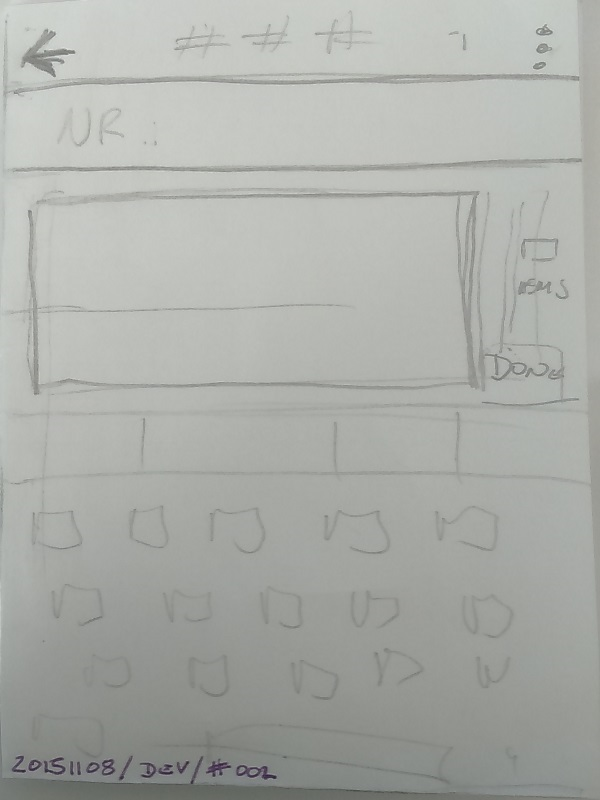 # # #
NR.:
DONE
20151108/DEV/#002